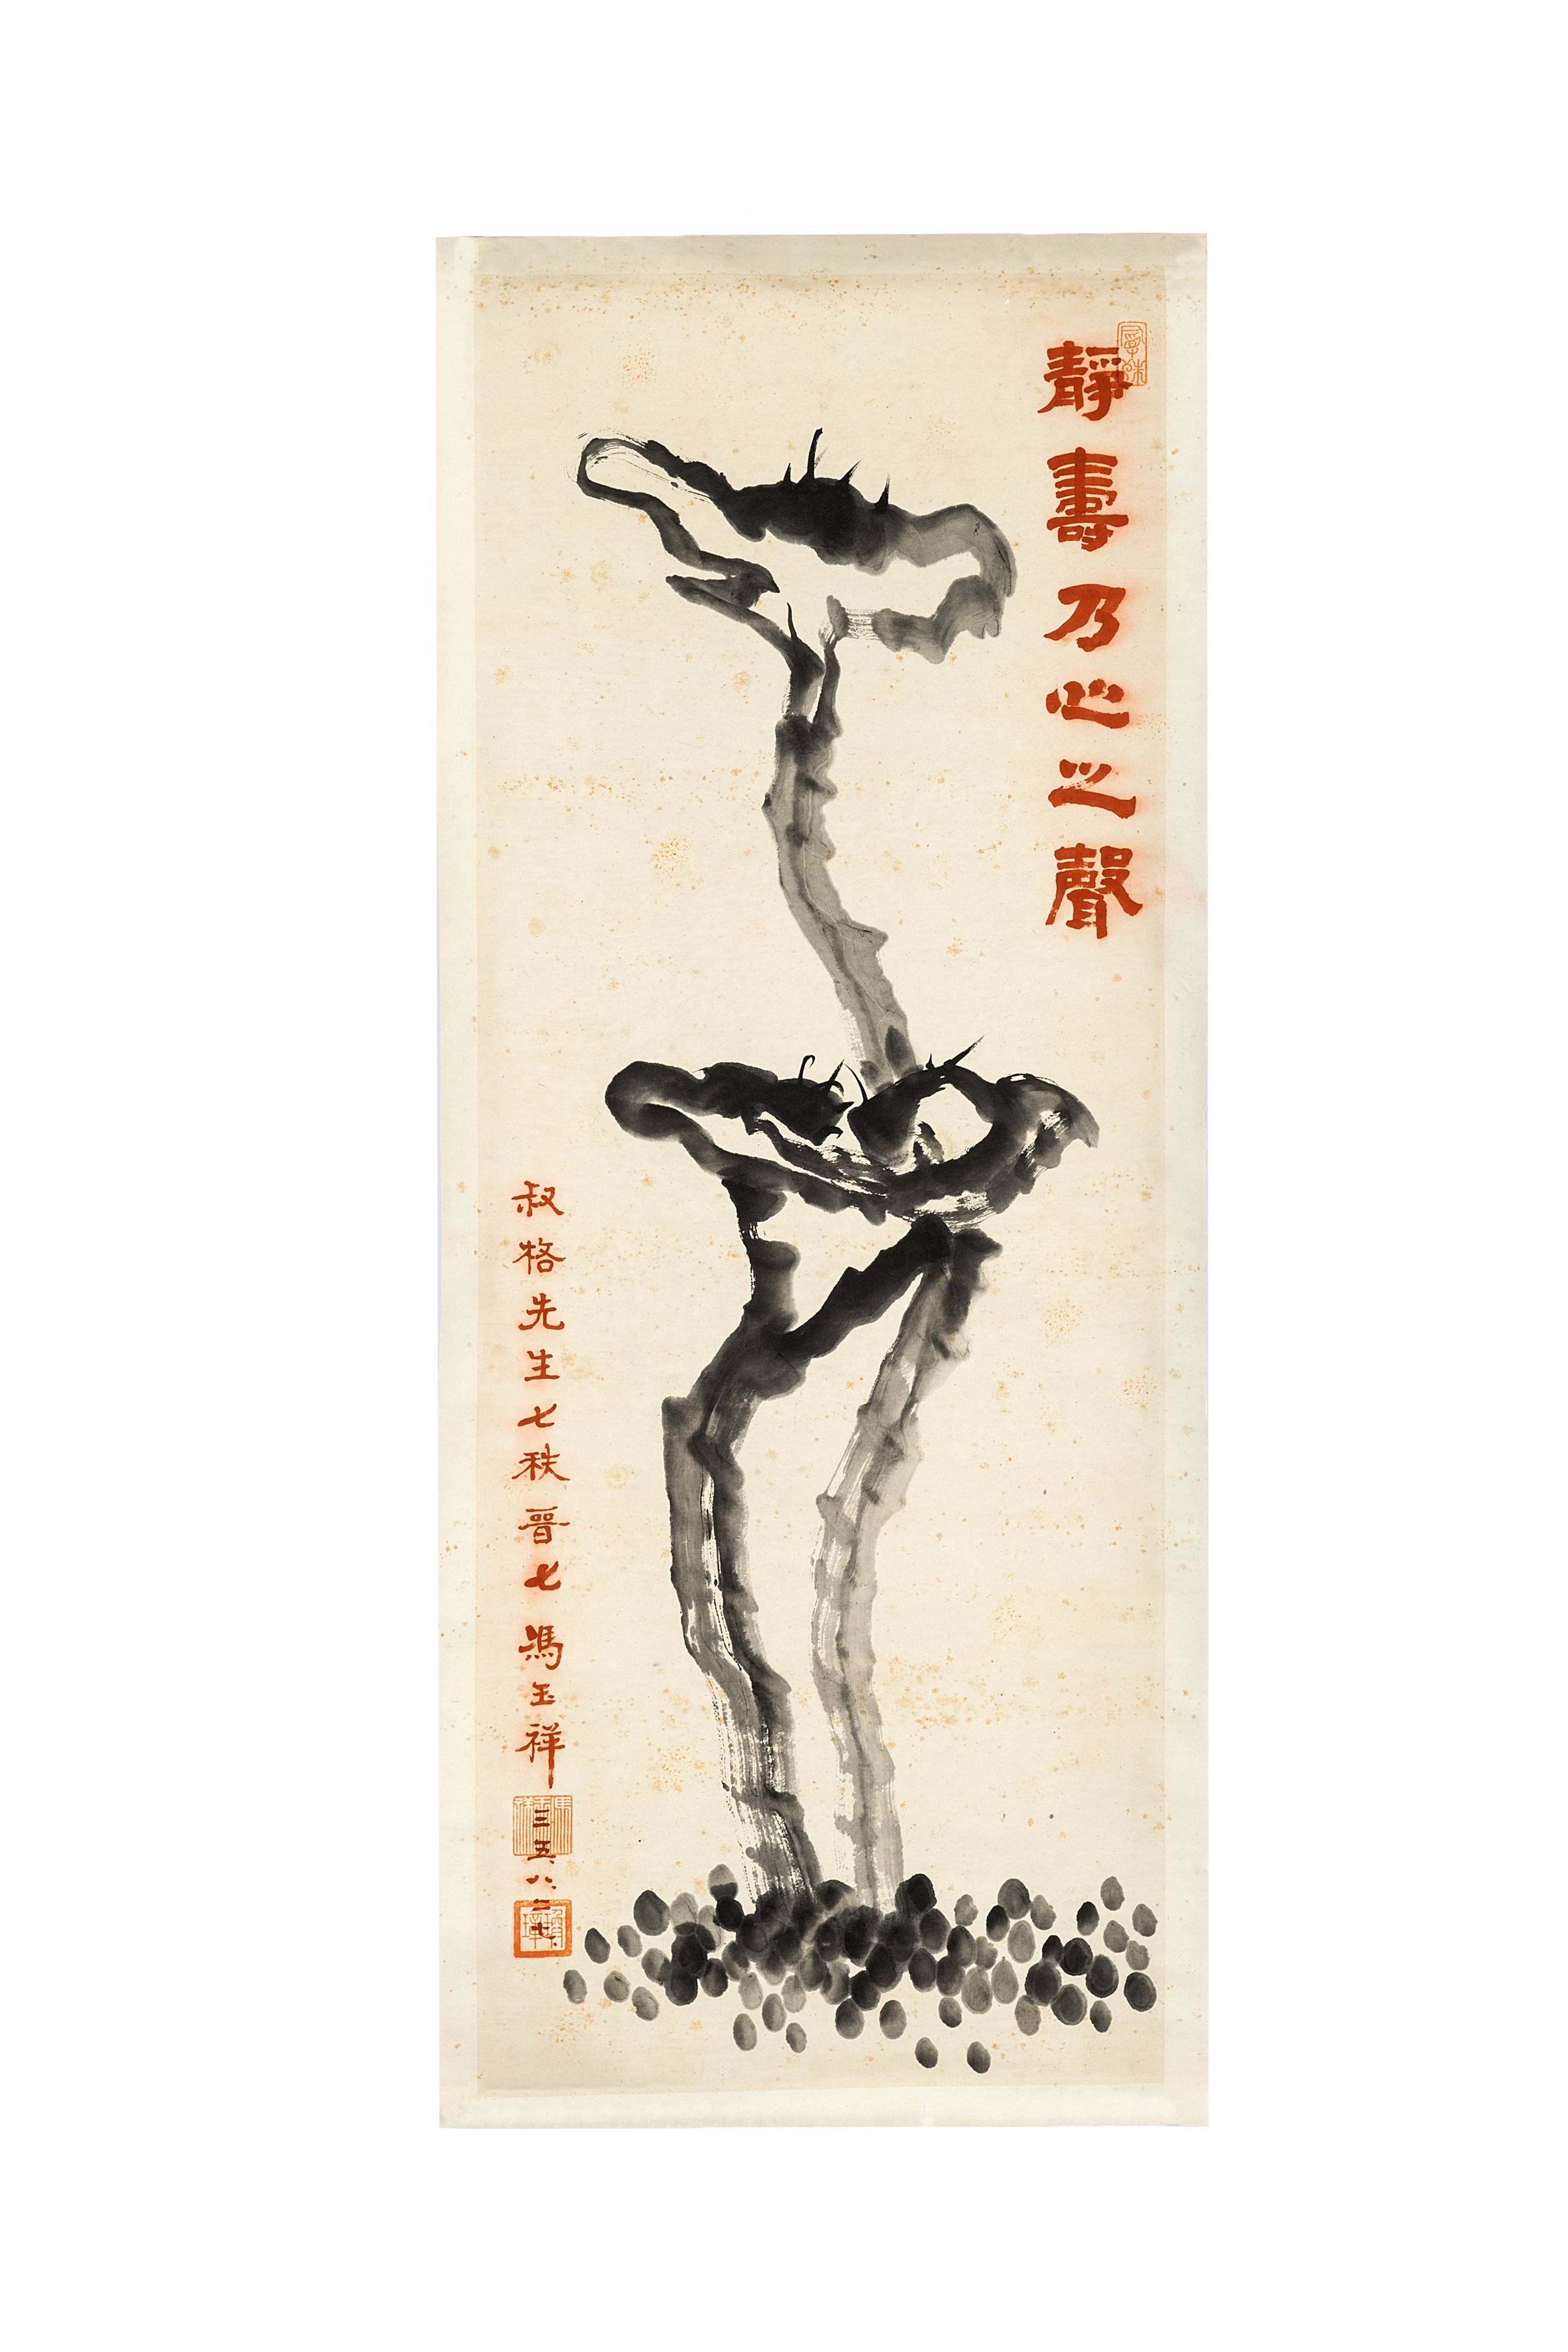 靜壽乃心之聲
叔格先生七秩晉七 馮玉祥
三五、八、二七、
馮玉祥